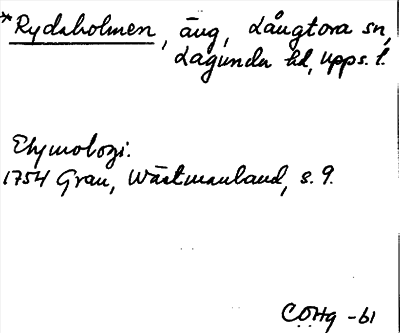 *Rydsholmen, äng, Långtora sn,
Lagunda hd, Upps. l.
Etymologi:
1754 Grau, Wästmanland, s. 9.
COHg -61